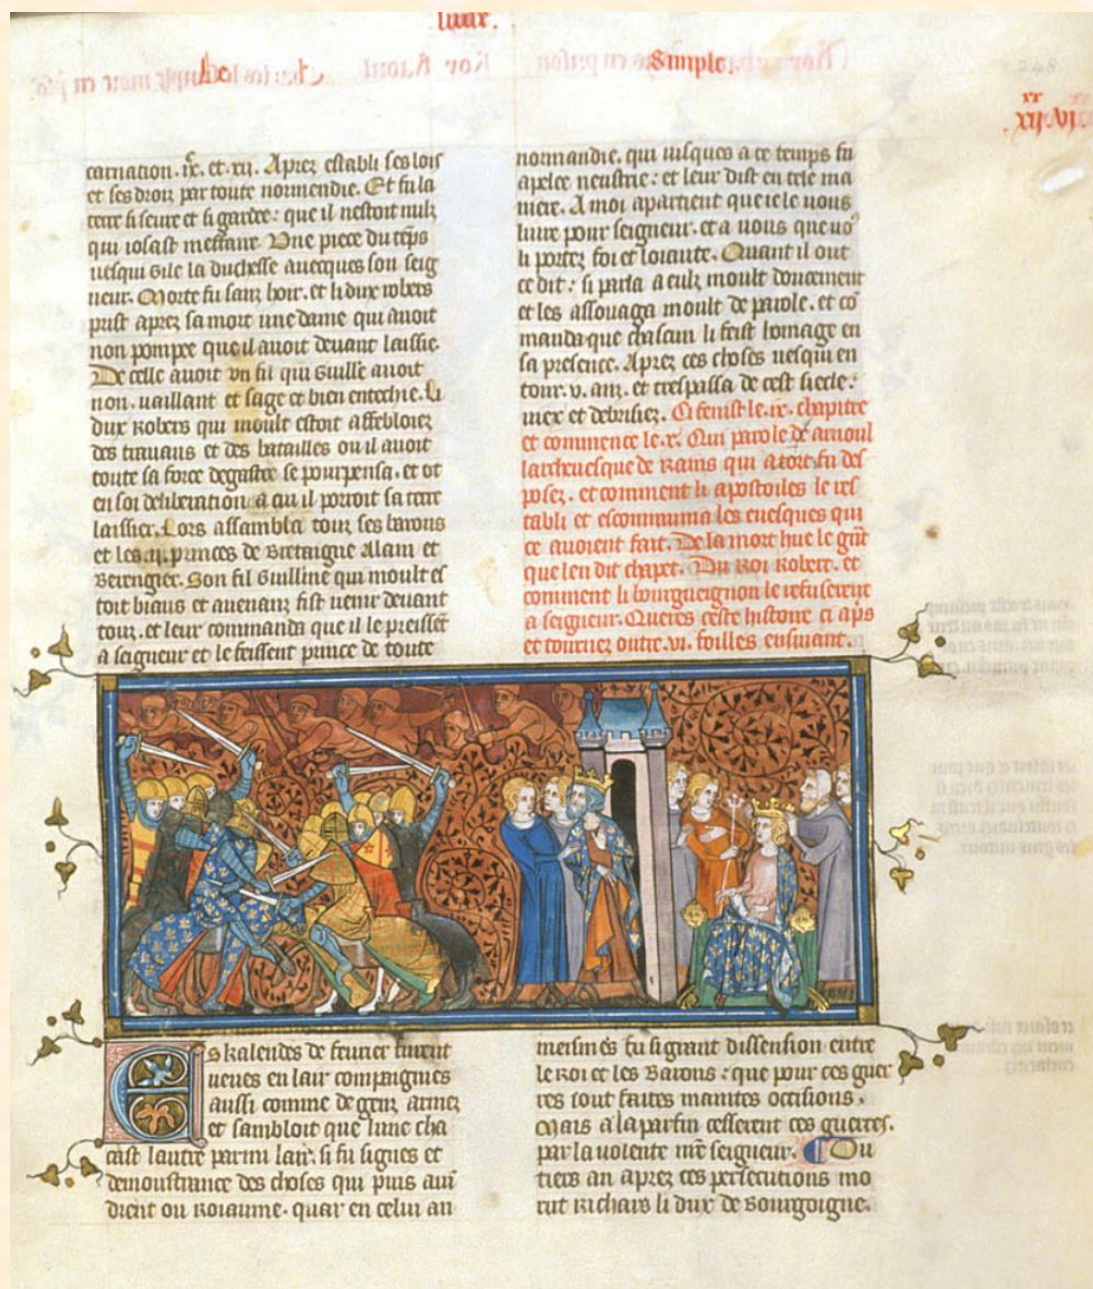 liure.
Simple.
xij.vj.
carnation. ix. et. xij. Aprez establi ses lois
et ses droiz par toute normendie. Et fu la
terre si seure et si gardee: que il nestoit nulz
qui josast meffaire. Vne piece du teps
uesqui Gile la duchesse auecques son seig
neur. Morte fu sanz hoir. et li dux robers
prist aprez sa mort une dame qui auoit
non pompee que il auoit deuant laissie.
De celle auoit vn fil qui Guille auoit
non. uaillant et sage et bien entechie. Li
dux Robers qui moult estoit affebloiez
des trauaus et des batailles ou il auoit
toute sa force degastee se pourpensa. et ot
en soi deliberation a qui il porroit sa terre
laissier. Lors assambla touz ses barons
et les .ij. princes de Bretaigne Alain et
Berengier. Son fil Guilline qui moult es
toit biaus et auenanz fist uenir deuant
touz. et leur commanda que il le preisset
a seigneur et le feissent prince de toute
normandie. qui iusques a ce temps fu
apelee neustrie: et leur dist en tele ma
niere. A moi apartient que ie le uous
liure pour seigneur. et a uous que uo
li portez foi et loiaute. Quant il out
ce dit: si parla a eulz moult doucement
et les assouaga moult de parole. et co
manda que chascun li feist homage en
sa presence. Aprez ces choses uesqui en
tour. v. anz. et trespassa de cest siecle:
uiex et debrisiez. Ci fenist le .ix. chapitre
et commence le .x. Qui parole de arnoul
larcheuesque de Rains qui a tort fu des
posez. et comment li apostoiles le res
tabli et escommuma les euesques qui
ce auoient fait. De la mort hue le grat
que len dit chapet. Du Roi Robert. et
comment li bourgueignon le refuserent
a seigneur. Queres ceste histoire ci aps
et tournez outre .vi. foilles ensuiant.
Es kalendes de feurier furent
ueues en lair compaignies
aussi comme de genz armez
et sambloit que lune cha
cast lautre parmi lair. si fu signes et
demoustrance des choses qui puis aui
drent ou Roiaume. quar en celui an
meismes fu si grant dissension entre
le Roi et les Barons: que pour ces guer
res sont faites maintes occisions.
Mais a la parfin cesserent ces guerres.
par la uolente nre seigneur. Ou
tiers an aprez ces persecutions mo
rut Richars li dux de Bourgoigne.